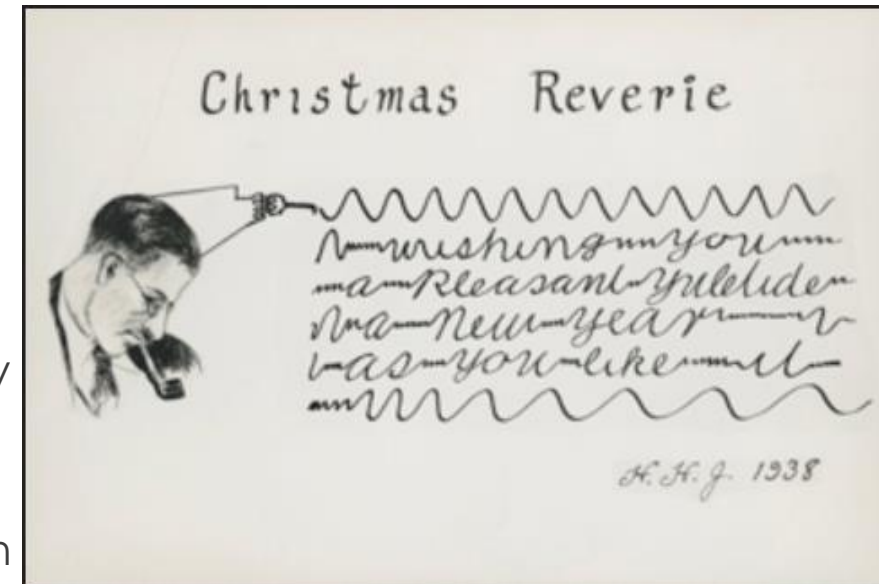 Christmas Reverie
wishing you
a Pleasant Yuletide
a New Year
as you like it
H. H. J. 1938
y
n